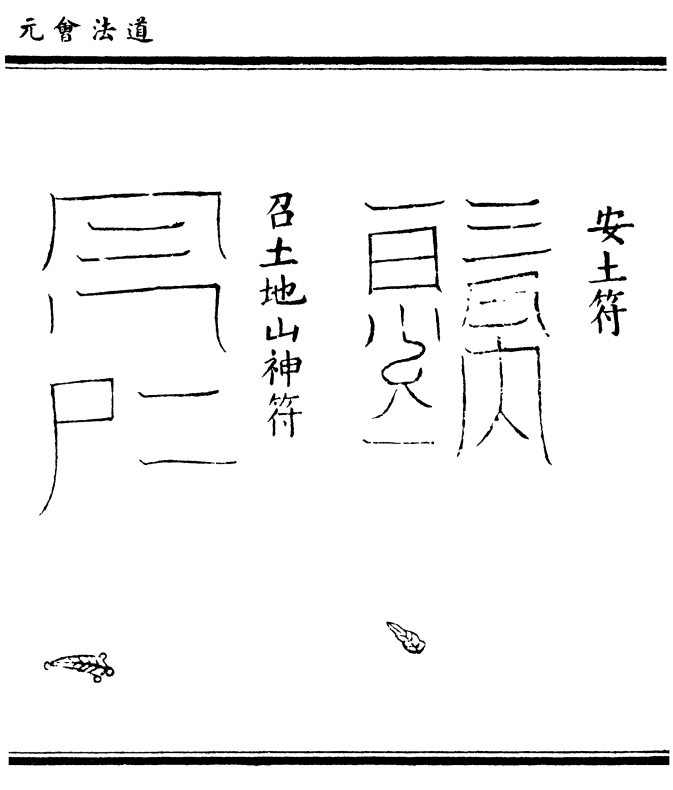 道法會元
安土符
召土地山神符